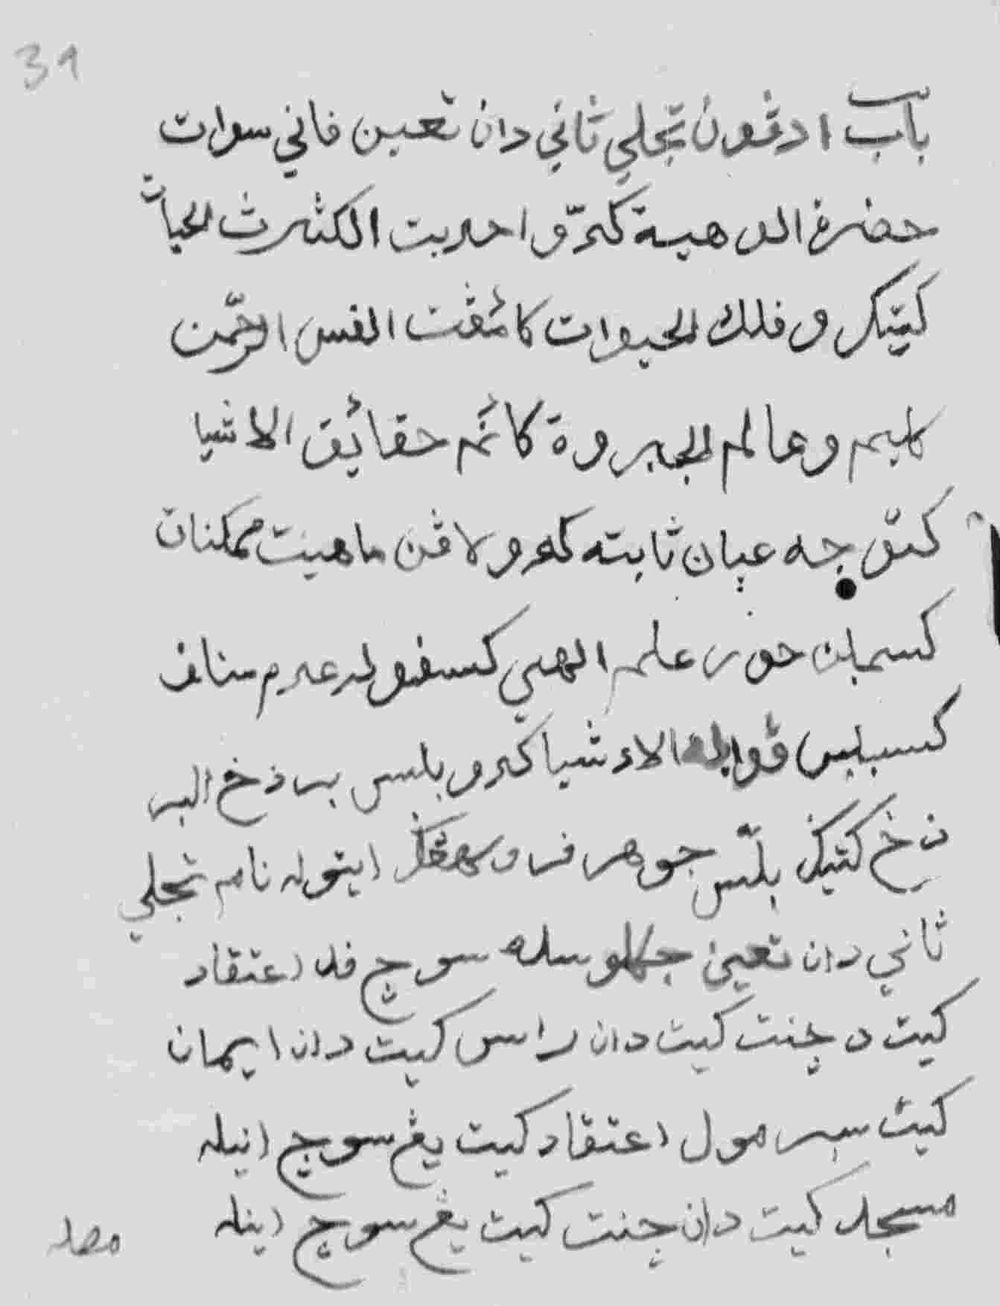 39
باب ادڤون تجلي ثاني دان تعين فاني سوات
حضرة الدهية كدو احديت الكثرة الحيات
كتيݢ و فلك الحيوات كأمڤت النفس الرحمن
كليم وعالم الجبروة كأنم حقائق الاشيا
كتوجه عيان ثابته كدو ولاڤن ماهيت ممكنات
كسمبيلن حضر علم الهي كسڤوله عدم مناف
كسبلس قوابل الاشيا كدو بلس برزخ البر
زخ كتيݢ بلس جوهر فرد ايتوله نام تجلي
ثاني دان تعين جكلو سده سوچ فد اعتقاد
كيت د چنت كيت دان راس كيت دان ايمان
كيت سمول اعتقاد كيت يڠ سوچ اينله
مسجد كيت دان چنت كيت يڠ سوچ اينله